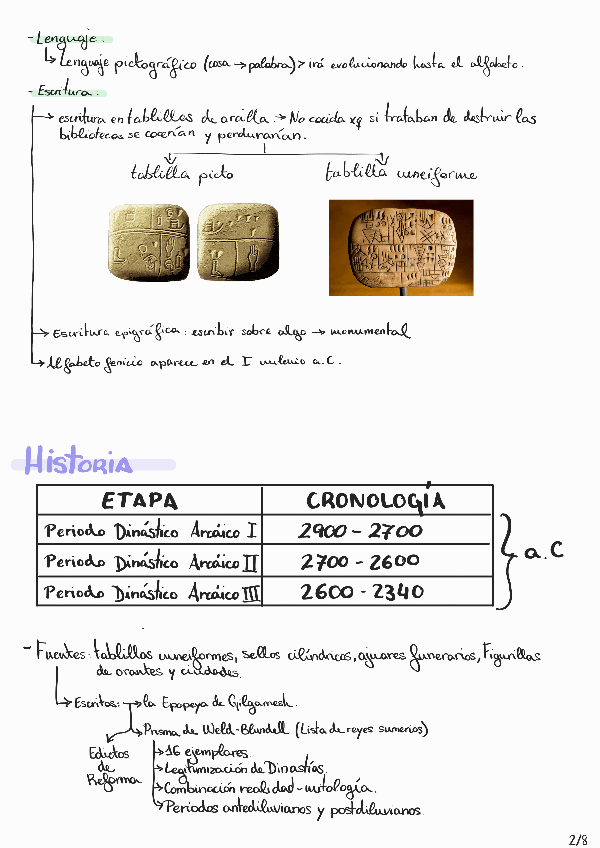 - Lenguaje.
↳ Lenguaje pictográfico (cosa → palabra) > irá evolucionando hasta el alfabeto.
- Escritura.
→ escritura en tablillas de arcilla. → No cocida xq si trataban de destruir las
bibliotecas se cocerían y perdurarían.
tablilla picto
tablilla cuneiforme
→ Escritura epigráfica: escribir sobre algo → monumental
→ Alfabeto fenicio aparece en el I milenio a.C.
Historia
ETAPA CRONOLOGÍA
Periodo Dinástico Arcáico I 2900 - 2700
Periodo Dinástico Arcáico II 2700 - 2600
Periodo Dinástico Arcáico III 2600 - 2340
a.C
- Fuentes: tablillas cuneiformes, sellos cilíndricos, ajuares funerarios, Figurillas
de orantes y ciudades.
↳ Escritos: → la Epopeya de Gilgamesh.
→ Prisma de Weld-Blundell (Lista de reyes sumerios)
Edictos
de
Reforma
→ 16 ejemplares.
→ Legitimización de Dinastías.
→ Combinación realidad - mitología.
→ Periodos antediluvianos y postdiluvianos.
2/8